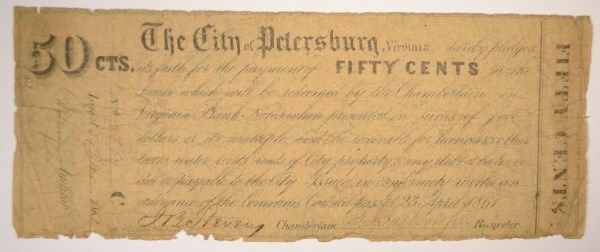 50 CTS.
The City of Petersburg, Virginia hereby pledges
its faith for the payment of FIFTY CENTS to the
bearer which will be redeemed by the Chamberlain in
Virginia Bank Notes when presented in sums of five
dollars or its multiple, and be receivable for licenses or other
taxes water rents rents of City property & any debt whatever
due or payable to the City. Issued in conformity with an
ordinance of the Common Council passed 23 April 1861
Chamberlain Recorder
C
FIFTY CENTS